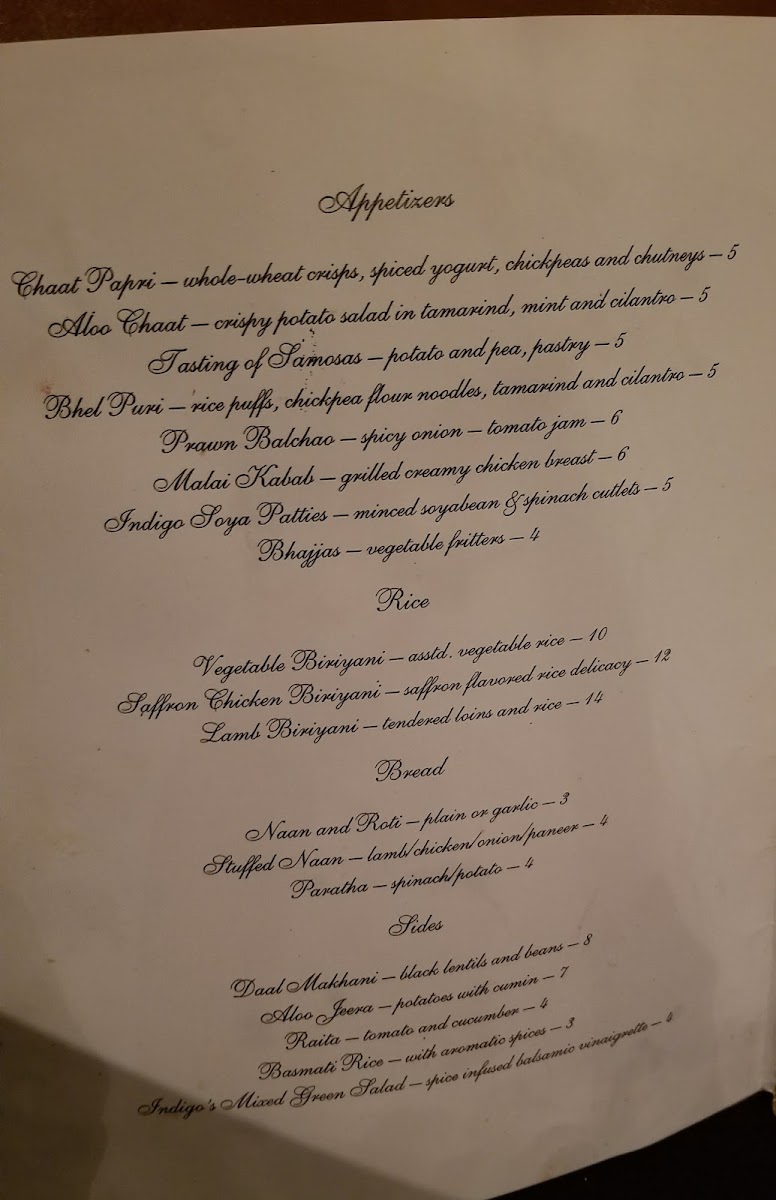 Appetizers
Chaat Papri – whole-wheat crisps, spiced yogurt, chickpeas and chutneys – 5
Aloo Chaat – crispy potato salad in tamarind, mint and cilantro – 5
Tasting of Samosas – potato and pea, pastry – 5
Bhel Puri – rice puffs, chickpea flour noodles, tamarind and cilantro – 5
Prawn Balchao – spicy onion – tomato jam – 6
Malai Kabab – grilled creamy chicken breast – 6
Indigo Soya Patties – minced soyabean & spinach cutlets – 5
Bhajjas – vegetable fritters – 4
Rice
Vegetable Biriyani – asstd. vegetable rice – 10
Saffron Chicken Biriyani – saffron flavored rice delicacy – 12
Lamb Biriyani – tendered loins and rice – 14
Bread
Naan and Roti – plain or garlic – 3
Stuffed Naan – lamb/chicken/onion/paneer – 4
Paratha – spinach/potato – 4
Sides
Daal Makhani – black lentils and beans – 8
Aloo Jeera – potatoes with cumin – 7
Raita – tomato and cucumber – 4
Basmati Rice – with aromatic spices – 3
Indigo's Mixed Green Salad – spice infused balsamic vinaigrette – 4